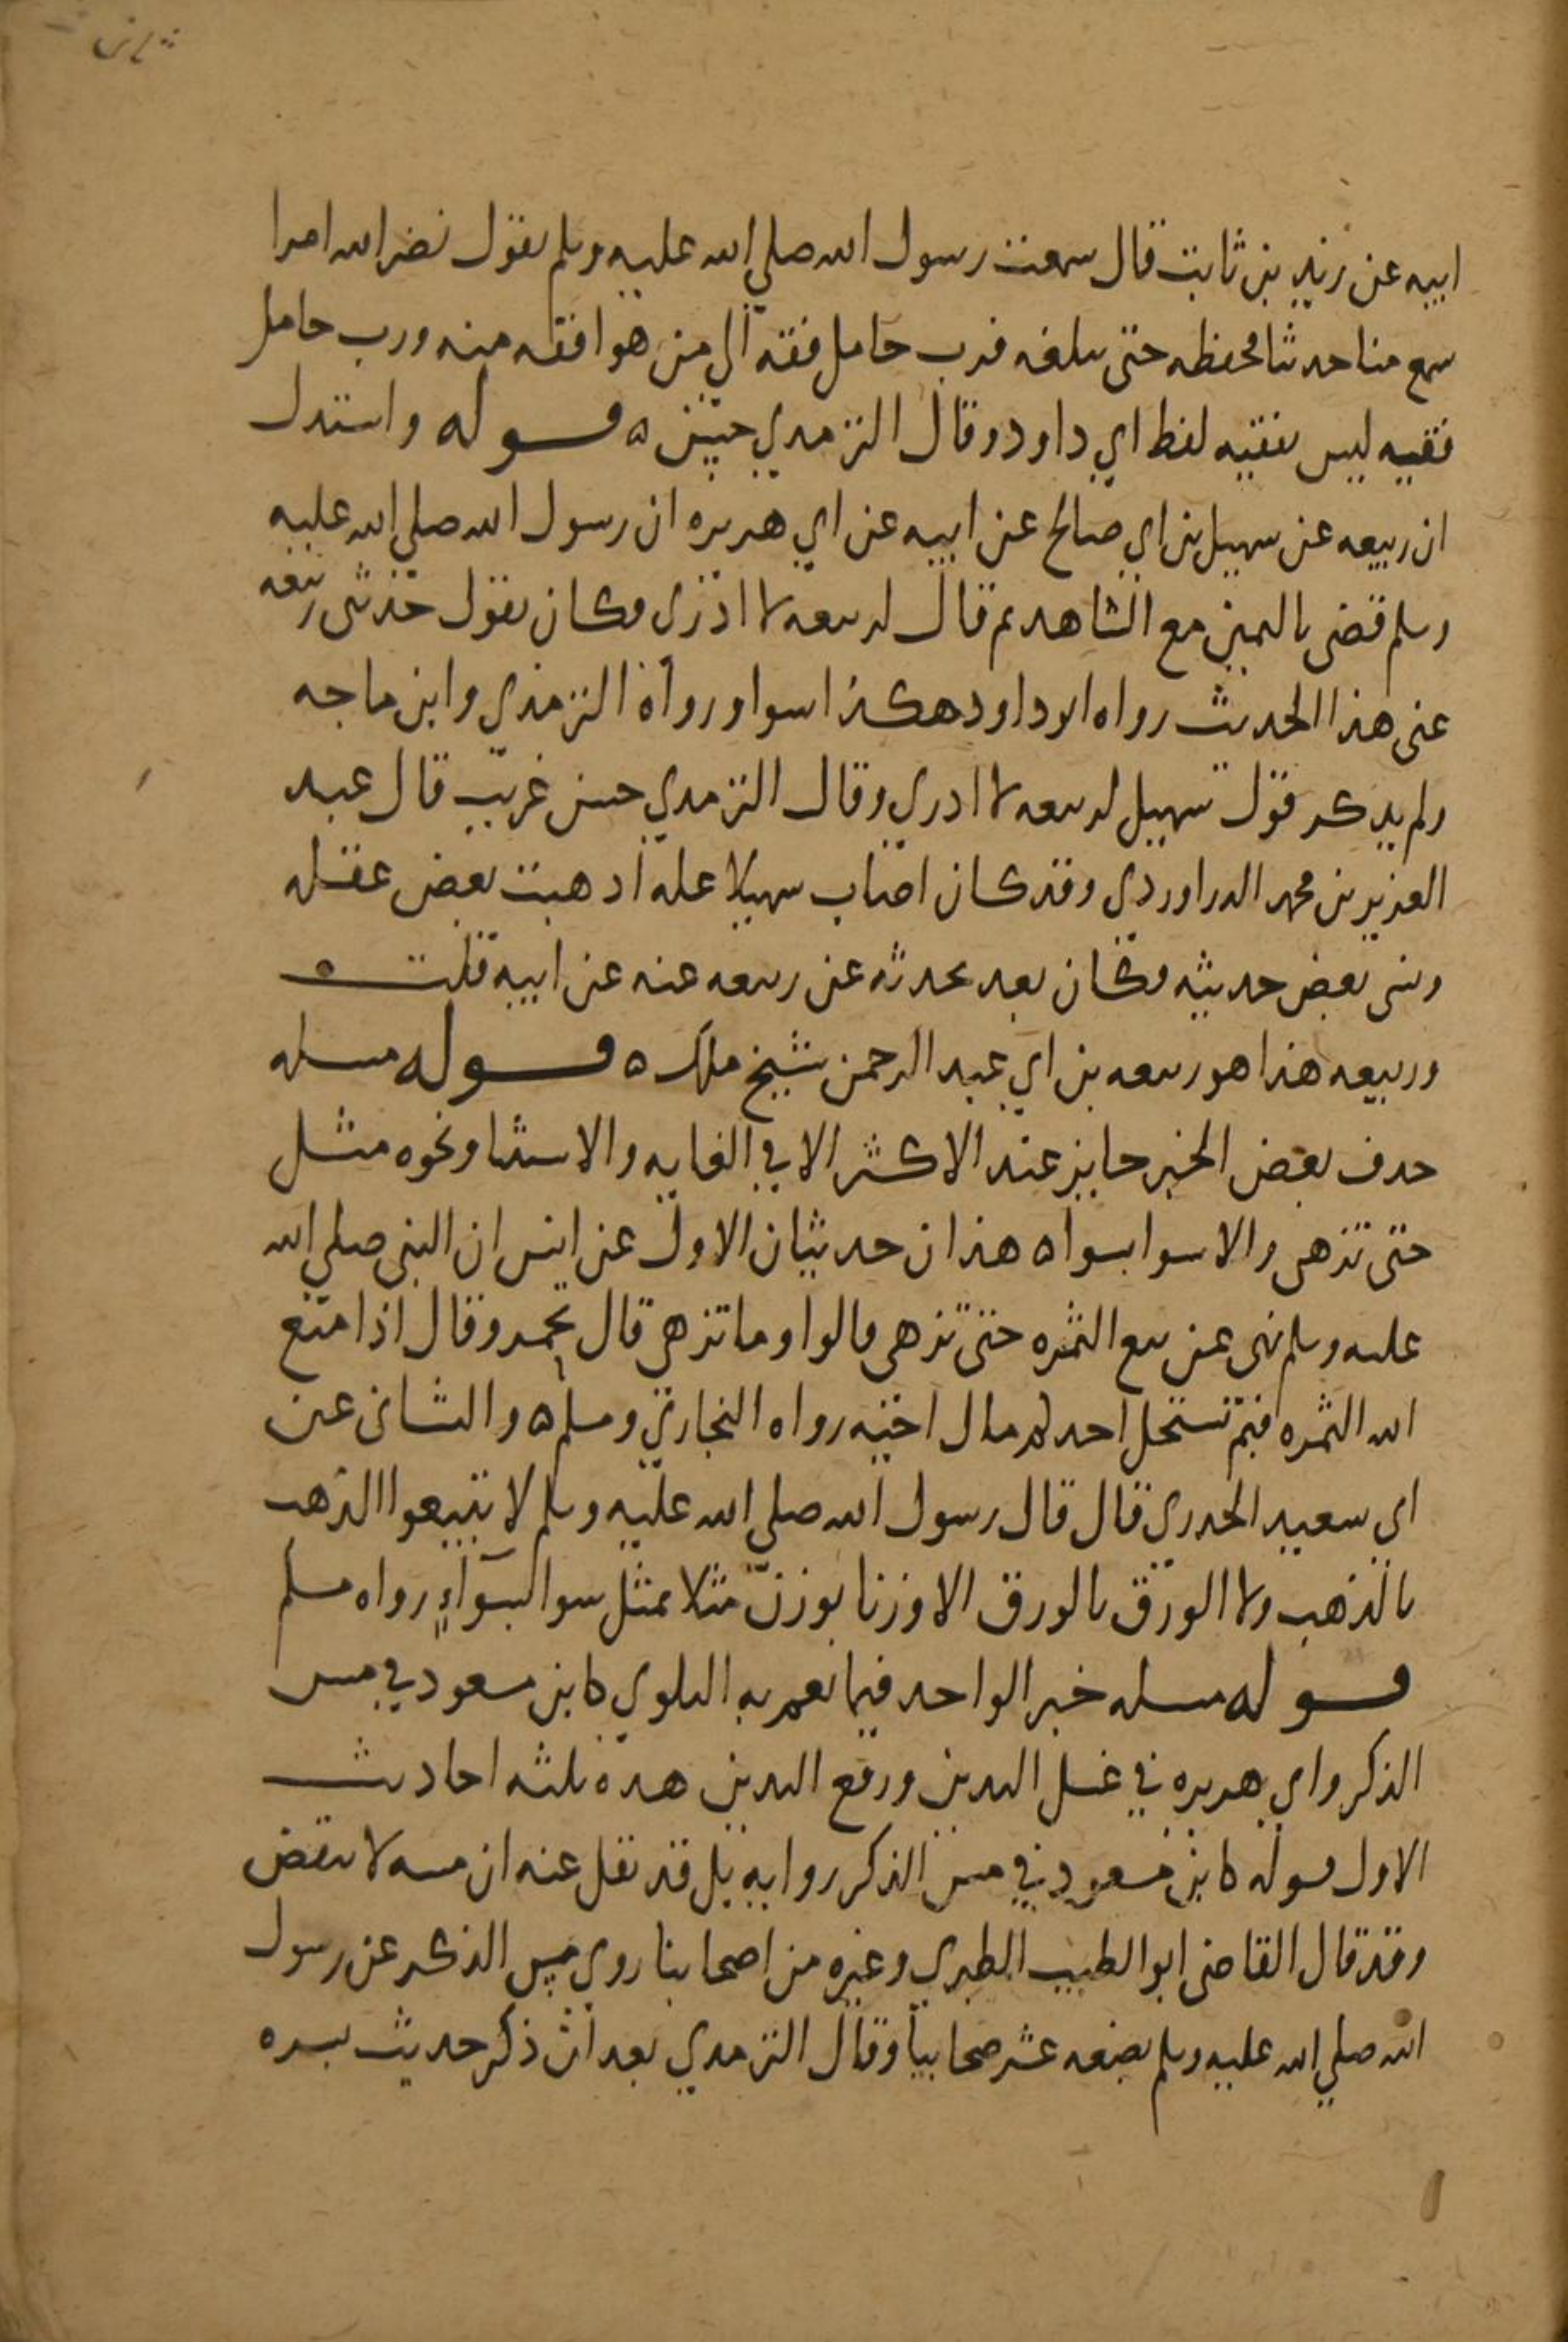 ابيه عن زيد بن ثابت قال سمعت رسول الله صلي الله عليه وسلم يقول نضر الله امرا
سمع منا حديثا فحفظه حتى يبلغه فرب حامل فقه الي من هو افقه منه ورب حامل
فقيه ليس بفقيه لفظ ابي داود وقال الترمدي حسن ه قوله واستدل
ان ربيعه عن سهيل بن ابي صالح عن ابيه عن ابي هريره ان رسول الله صلي الله عليه
وسلم قضى باليمين مع الشاهد ثم قال لربيعه لا ادري فكان يقول حدثني ربيعه
عنى هذا الحديث رواه ابو داود هكذا سوا ورواه الترمذي وابن ماجه
ولم يدكر قول سهيل لربيعه لا ادري وقال الترمدي حسن غريب قال عبد
العزيز بن محمد الدراوردي وقد كان اصاب سهيلا عله ادهبت بعض عقله
ونسى بعض حديثه فكان بعد يحدثه عن ربيعه عنه عن ابيه قلت
وربيعه هذا هو ربيعه بن ابي عبد الرحمن شيخ ملك ه قوله مسله
حدف بعض الخبر جايز عند الاكثر الا في الغايه والاستثنا ونحوه مثل
حتى تزهى والا سوا بسواه هذان حديثان الاول عن انس ان النبي صلي الله
عليه وسلم نهى عن بيع الثمره حتى تزهى قالوا وما تزهى قال تحمر وقال اذا منع
الله الثمره فبم تستحل احدكم مال اخيه رواه البخاري ومسلم ه والثاني عن
ابي سعيد الخدري قال قال رسول الله صلي الله عليه وسلم لا تبيعوا الذهب
بالذهب ولا الورق بالورق الا وزنا بوزن مثلا بمثل سوا بسواءٍ رواه مسلم
قوله مسله خبر الواحد فيما تعم به البلوي كابن مسعود في مس
الذكر وابي هريره في غسل اليدين ورفع اليدين هده ثلثه احاديث
الاول قوله كابن مسعود في مس الذكر روايه بل قد نقل عنه ان مسه لا ينقض
وقد قال القاضى ابو الطيب الطبري وغيره من اصحابنا روي مس الذكر عن رسول
الله صلي الله عليه وسلم بضعه عشر صحابيا وقال الترمدي بعد ان ذكر حديث بسره